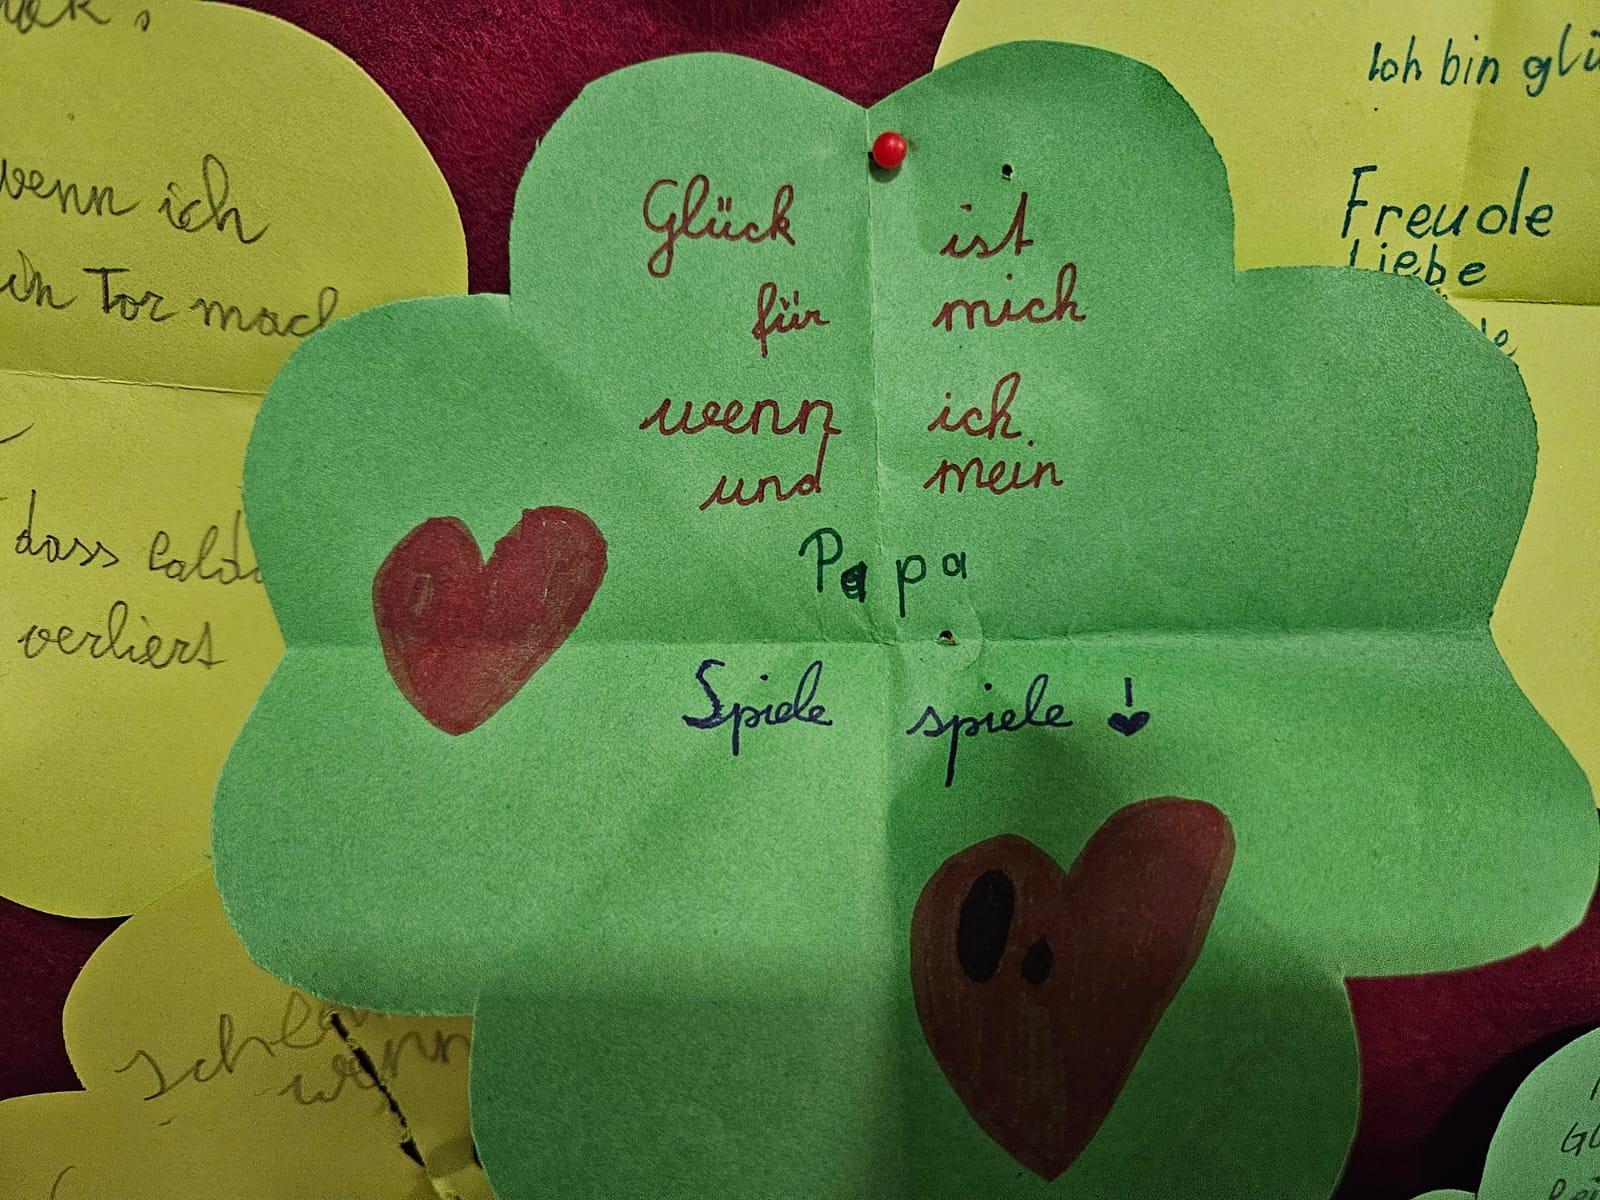 wenn ich
Tor mach
dass
verliert
Glück ist
für mich
wenn ich
und mein
Papa
Spiele spiele!
Ich bin glü
Freude
Liebe
wenn